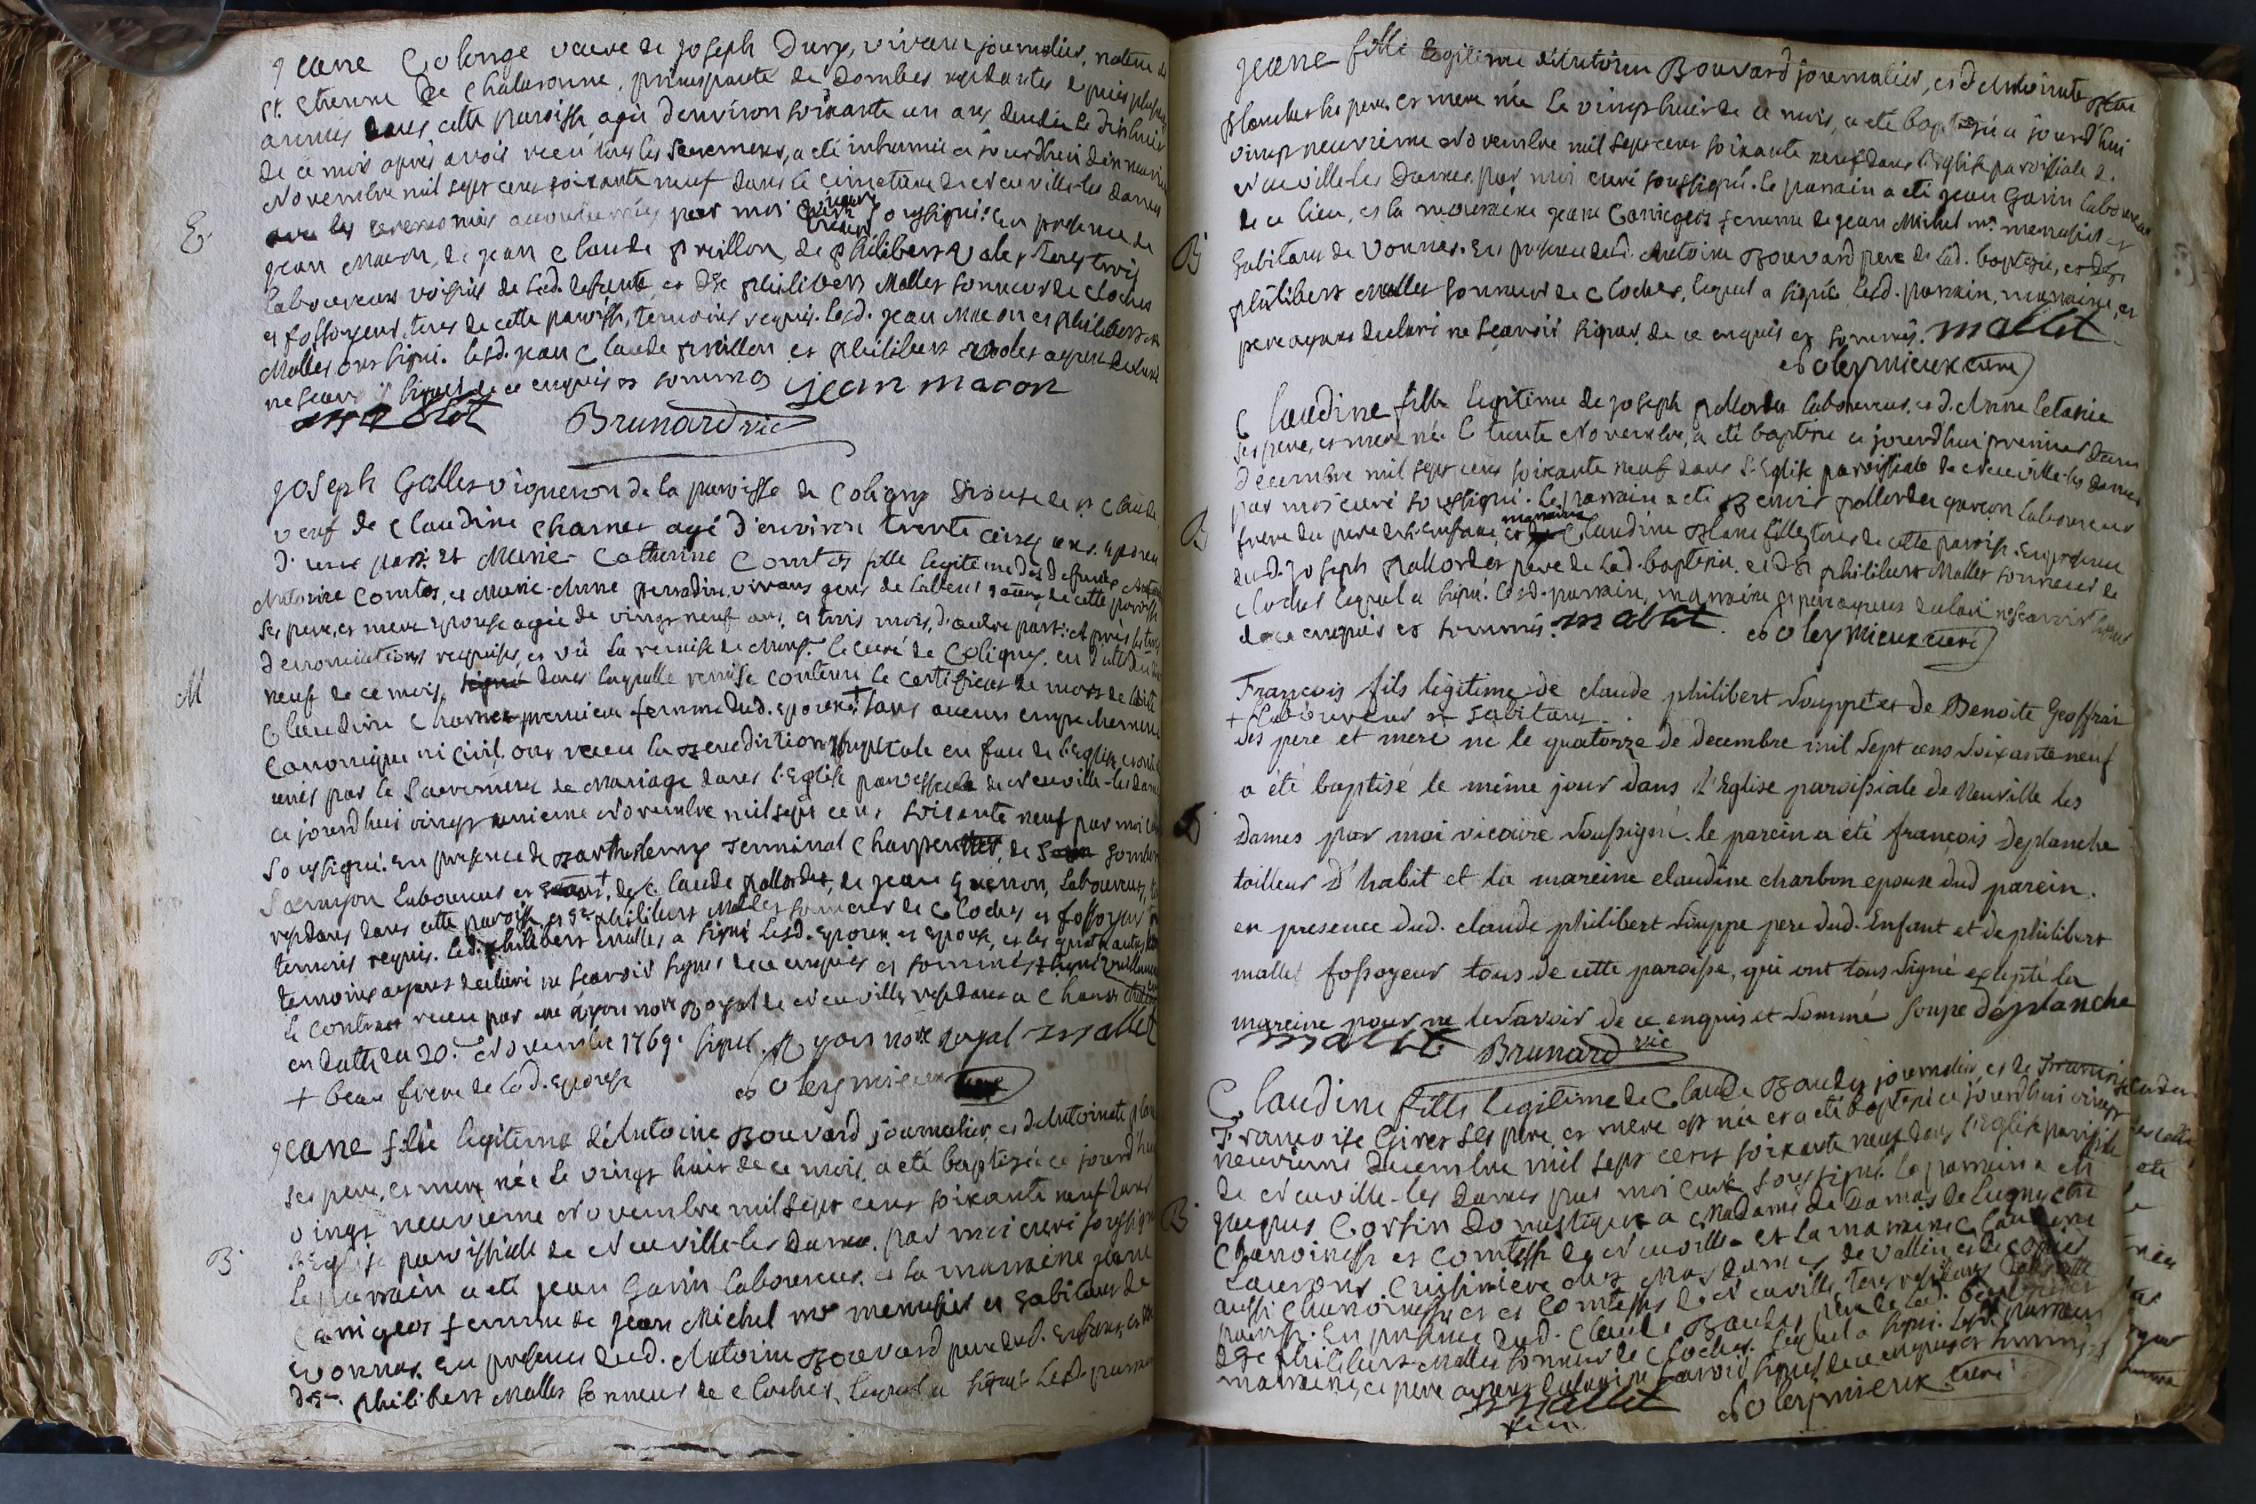 Jeane Colonge veuve de Joseph Dury, vivant journalier, native de
St. Etienne de Chalaronne, principauté de Dombes residante depuis plusieurs
années dans cette paroisse agée d'environ soixante un ans decedée le dishuit
de ce mois après avoir receu tous les sacremens, a été inhumée ce jourdhui dixneuvieme
Novembre mil sept cens soixante neuf dans le cimetiere de Neuville-les dames
avec les ceremonies accoutumées par moi vicaire soussigné: en presence de
E.
jean Macon, de jean Claude Preillon, de philibert Valet tous trois
laboureurs voisins de lad. defunte, et de Sr. philibert Mallet sonneur de cloches
et fossoyeur, tous de cette paroisse, temoins requis. Lesd. jean Macon et philibert
Mallet ont signé. lesd. jean Claude Preillon et philibert Valet ayant declaré
ne scavoir signer de ce enquis et sommés jean macon
mallet Brunard vic
Joseph Gallet vigneron de la paroisse de Coligny Diocese de St Claude,
veuf de Claudine Charnet agé d'environ trente cinq ans. epoux
d'une part. et Marie-Catherine Comtet fille legitime des defunts
Antoine Comtet, et Marie-Anne perradin, vivans gens de labeur de cette paroisse
ses pere, et mere epouse agée de vingt neuf ans, et trois mois, d'autre part: Après les trois
denonciations requises, et vû la remise de Monsr. le curé de Coligny en datte du dix
M
neuf de ce mois, dans laquelle remise contenu le certificat de mort de laditte
Claudine Charnet premiere femme dud. epoux, sans aucun empechement
Canonique ni civil, ont receu la Benediction nuptiale en face de l'Eglise, et ont eté
unis par le Sacrement de Mariage dans l'Eglise paroissiale de Neuville-les dames
ce jourd'hui vingt unieme Novembre mil sept cens soixante neuf par moi curé
soussigné. en presence de Barthelemy Terminal Charpentier, de
laboureur et de Claude pallordet, de jean Guenon, laboureurs, tous
residans dans cette paroisse, et Sr. philibert Mallet sonneur de Cloches et fossoyeur
temoins requis. led. philibert Mallet a signé lesd. epoux et epouse, et les quatre autres
temoins ayant declaré ne scavoir signer de ce enquis et sommés
le contract receu par me ayon nore Royal de Neuville, residant a
en datte du 20e. Novembre 1769. signé. ayon nore royal mallet
+ beau frere de lad. epouse Soleymieux curé
Jeane fille legitime d'Antoine Bouvard journalier, et d'Antoinete
ses pere, et mere née le vingt huit de ce mois, a été baptisée ce jourd'hui
vingt neuvieme Novembre mil sept cens soixante neuf dans
B
l'Eglise paroissiale de Neuville-les Dames, par moi curé soussigné
le parrain a eté jean Garin laboureur, et la marraine jeane
Carrigeos femme de jean Michel mre menusier et habitant de
Vonnas. en presence dud. Antoine Bouvard pere dud. Enfant, et
de Sr. philibert Mallet sonneur de cloches, lequel a signé lesd. parrain
Jeane fille legitime d'Antoine Bouvard journalier, et d'Antoinete
planchet ses pere, et mere née le vingt huit de ce mois, a eté baptisée ce jourd'hui
vingt neuvieme Novembre mil sept cens soixante neuf dans l'Eglise paroissiale de
Neuville-les Dames, par moi curé soussigné. le parrain a eté jean Garin laboureur
de ce lieu, et la marraine jeane Carrigeos femme de jean Michel mre. menusier et
B
habitant de Vonnas. en presence dud. Antoine Bouvard pere de lad. baptisée, et de Sr
philibert Mallet sonneur de cloches, lequel a signé lesd. parrain, marraine, et
pere ayant declaré ne scavoir signer, de ce enquis et sommés. mallet
Soleymieux curé
Claudine fille legitime de joseph pallordet laboureur, et d'Anne letanie
ses pere, et mere née le trente Novembre, a eté baptisée ce jourd'hui premier
Decembre mil sept cens soixante neuf dans l'Eglise paroissiale de Neuville-les dames
par moi curé soussigné. le parrain a eté Benoit pallordet garçon laboureur
B
frere du pere de l'Enfant, et la marraine Claudine Blanc fille, tous de cette paroisse. En presence
dud. joseph pallordet pere de lad. baptisée. et de Sr philibert Mallet sonneur de
cloches lequel a signé. lesd. parrain, marraine et pere ayant declaré ne scavoir signer
de ce enquis et sommés. mallet. Soleymieux curé
François fils légitime de claude philibert Souppe et de Benoite Geoffrai
+ laboureur et habitant.
ses pere et mere né le quatorze de decembre mil sept cens soixante neuf
a été baptisé le même jour dans l'Eglise paroissiale de Neuville les
Dames par moi vicaire soussigné. le parein a été françois deplanche
tailleur d'habit et la mareine claudine charbon epouse dud parein.
en presence dud. claude philibert souppe pere dud. Enfant et de philibert
mallet fossoyeur tous de cette paroisse, qui ont tous signé excepté la
mareine pour ne le savoir de ce enquis et sommé soupe déplanche
mallet Brunard vic
Claudine fille legitime de Claude Baudy journalier, et de
Françoise Givet ses pere, et mere est née et a eté baptisée ce jourd'hui vingt
neuvieme Decembre mil sept cens soixante neuf dans l'Eglise paroissiale
de Neuville-les Dames par moi curé soussigné. le parrain a eté
B
jacques Corsin domestique a Madame de Damas de Lugny
Chanoinesse et Comtesse de Neuville et la marraine Claudine
Laurent, Cuisiniere chez Mesdames de Vallin, et de
aussi chanoinesses et Comtesses de Neuville, tous residans dans cette
paroisse. En presence dud. Claude Baudy pere de lad. baptisée et
de Sr philibert Mallet sonneur de Cloches. lequel a signé. lesd. parrain
marraine, et pere ayant declaré ne scavoir signer de ce enquis et sommés
mallet Soleymieux curé